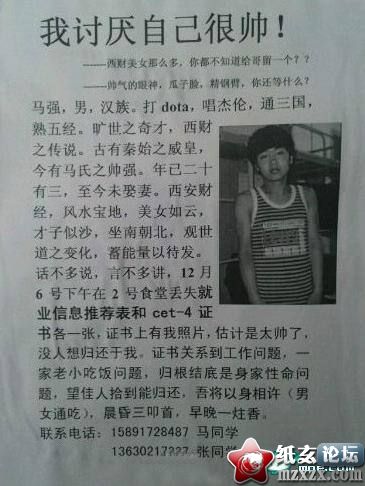 我讨厌自己很帅！
------西财美女那么多，你都不知道给哥留一个？？
------帅气的眼神，瓜子脸，精钢臂，你还等什么？
马强，男，汉族。打 dota，唱杰伦，通三国，
熟五经。旷世之奇才，西财
之传说。古有秦始之威皇，
今有马氏之帅强。年已二十
有三，至今未娶妻。西安财
经，风水宝地，美女如云，
才子似沙，坐南朝北，观世
道之变化，蓄能量以待发。
话不多说，言不多讲，12 月
6 号下午在 2 号食堂丢失就
业信息推荐表和 cet-4 证
书各一张，证书上有我照片，估计是太帅了，
没人想归还于我。证书关系到工作问题，一
家老小吃饭问题，归根结底是身家性命问
题，望佳人拾到能归还，吾将以身相许（男
女通吃），晨昏三叩首，早晚一炷香。
联系电话：15891728487 马同学
13630217227 张同学
纸玄论坛
mzxzx.com